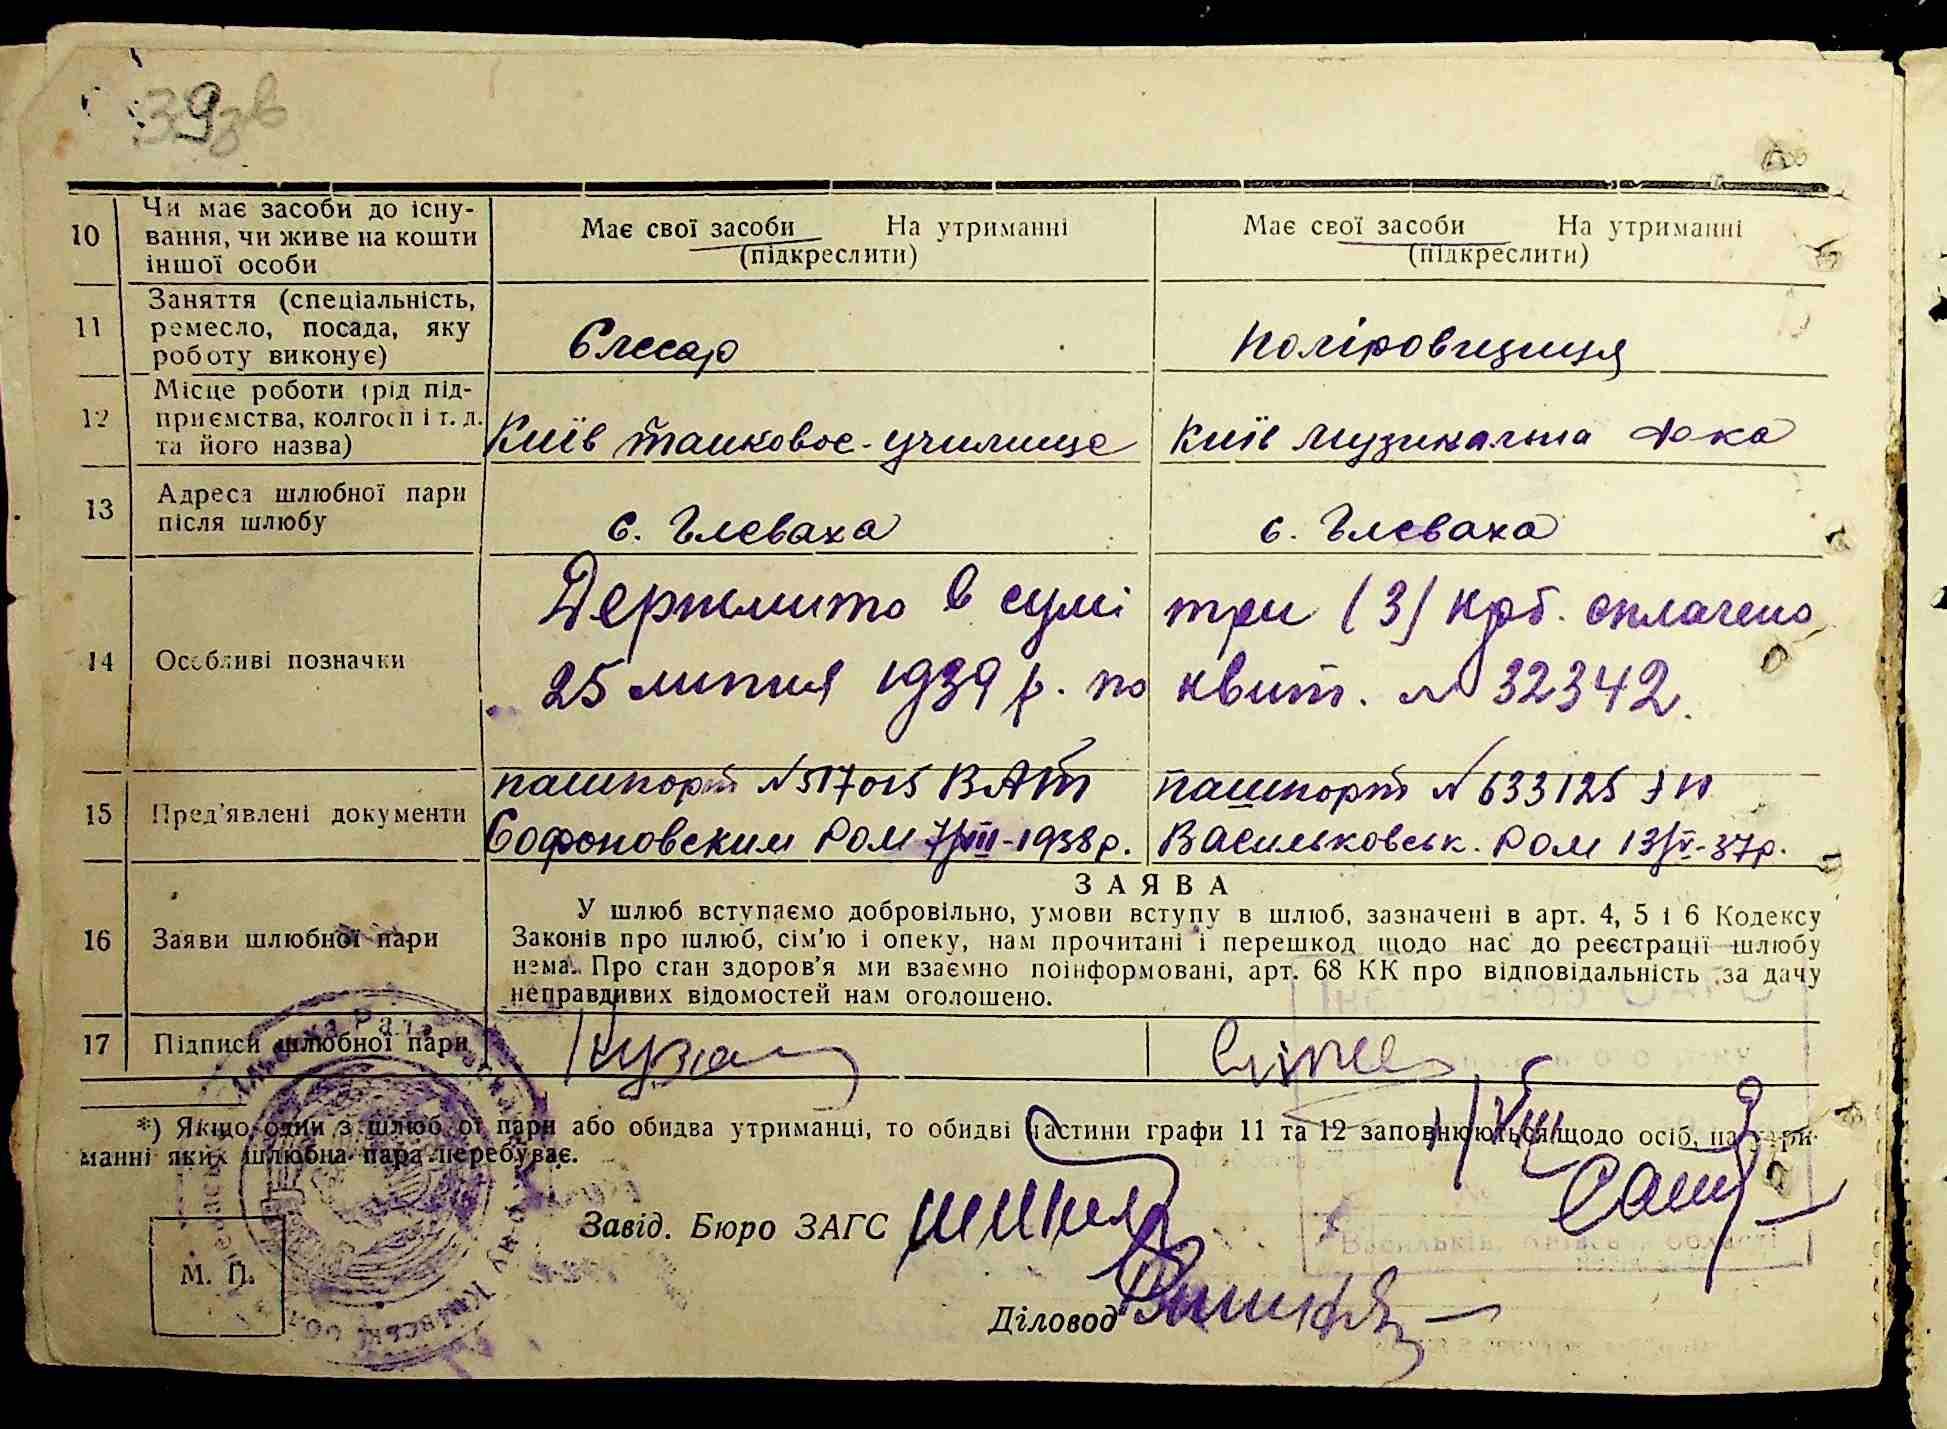 39зв
10 Чи має засоби до існу-
вання, чи живе на кошти
іншої особи
Має свої засоби На утриманні
(підкреслити)
Має свої засоби На утриманні
(підкреслити)
11 Заняття (спеціальність,
ремесло, посада, яку
роботу виконує)
Слесар
Поліровщиця
12 Місце роботи (рід під-
приємства, колгосп і т. д.
та його назва)
Київ танковое-училище
Київ музикальна
13 Адреса шлюбної пари
після шлюбу
с. Глеваха
с. Глеваха
14 Особливі позначки
Держмито в сумі три (3) крб. оплачено
25 липня 1939 р. по квит. № 32342.
15 Пред'явлені документи
пашпорт №517015 ВАТ
Софоновским РОМ 7/VIII-1938р.
пашпорт № 633125
Васильковськ. РОМ 13/V-37р.
16 Заяви шлюбної пари
ЗАЯВА
У шлюб вступаємо добровільно, умови вступу в шлюб, зазначені в арт. 4, 5 і 6 Кодексу
Законів про шлюб, сім'ю і опеку, нам прочитані і перешкод щодо нас до реєстрації шлюбу
нема. Про стан здоров'я ми взаємно поінформовані, арт. 68 КК про відповідальність за дачу
неправдивих відомостей нам оголошено.
17 Підписи шлюбної пари
*) Якщо один з шлюбної пари або обидва утриманці, то обидві частини графи 11 та 12 заповнюються щодо осіб, на утри-
манні яких шлюбна пара перебуває.
Завід. Бюро ЗАГС
М. П.
Діловод